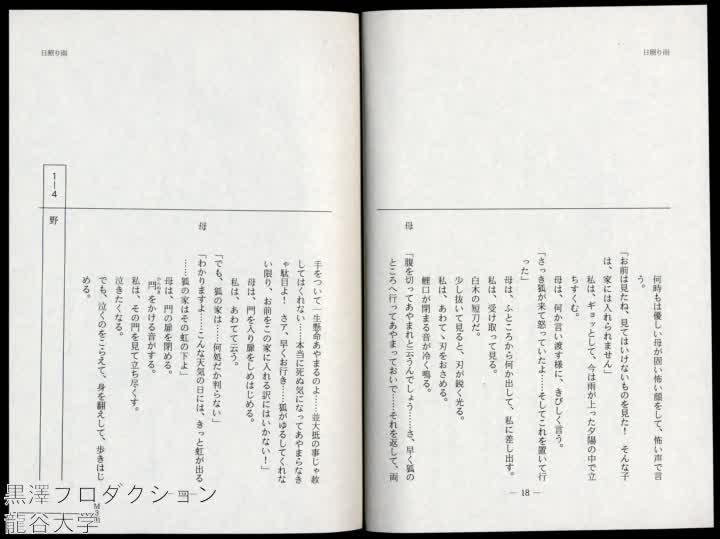 日照り雨
何時もは優しい母が固い怖い顔をして、怖い声で言
う。
「お前は見たね、見てはいけないものを見た! そんな子
は、家には入れられません」
私は、ギョッとして、今は雨が上った夕陽の中で立
ちすくむ。
母は、何か言い渡す様に、きびしく言う。
「さっき狐が来て怒っていたよ……そしてこれを置いて行
った」
母は、ふところから何か出して、私に差し出す。
私は、受け取って見る。
白木の短刀だ。
少し抜いて見ると、刃が鋭く光る。
私は、あわてゝ刃をおさめる。
鯉口が閉まる音が冷く鳴る。
母
「腹を切ってあやまれと云うんでしょう……さ、早く狐の
ところへ行ってあやまっておいで……それを返して、両
— 18 —
日照り雨
手をついて一生懸命あやまるのよ……並大抵の事じゃ赦
してはくれない……本当に死ぬ気になってあやまらなき
ゃ駄目よ! さア、早くお行き……狐がゆるしてくれな
い限り、お前をこの家に入れる訳にはいかない!」
母は、門を入り扉をしめはじめる。
私は、あわてて云う。
「でも、狐の家は……何処だか判らない」
母
「わかりますよ……こんな天気の日には、きっと虹が出る
……狐の家はその虹の下よ」
母は、門の扉を閉める。
門をかける音がする。
私は、その門を見て立ち尽くす。
泣きたくなる。
でも、泣くのをこらえて、身を翻えして、歩きはじ
める。
1—4
野
黒澤プロダクション
龍谷大学